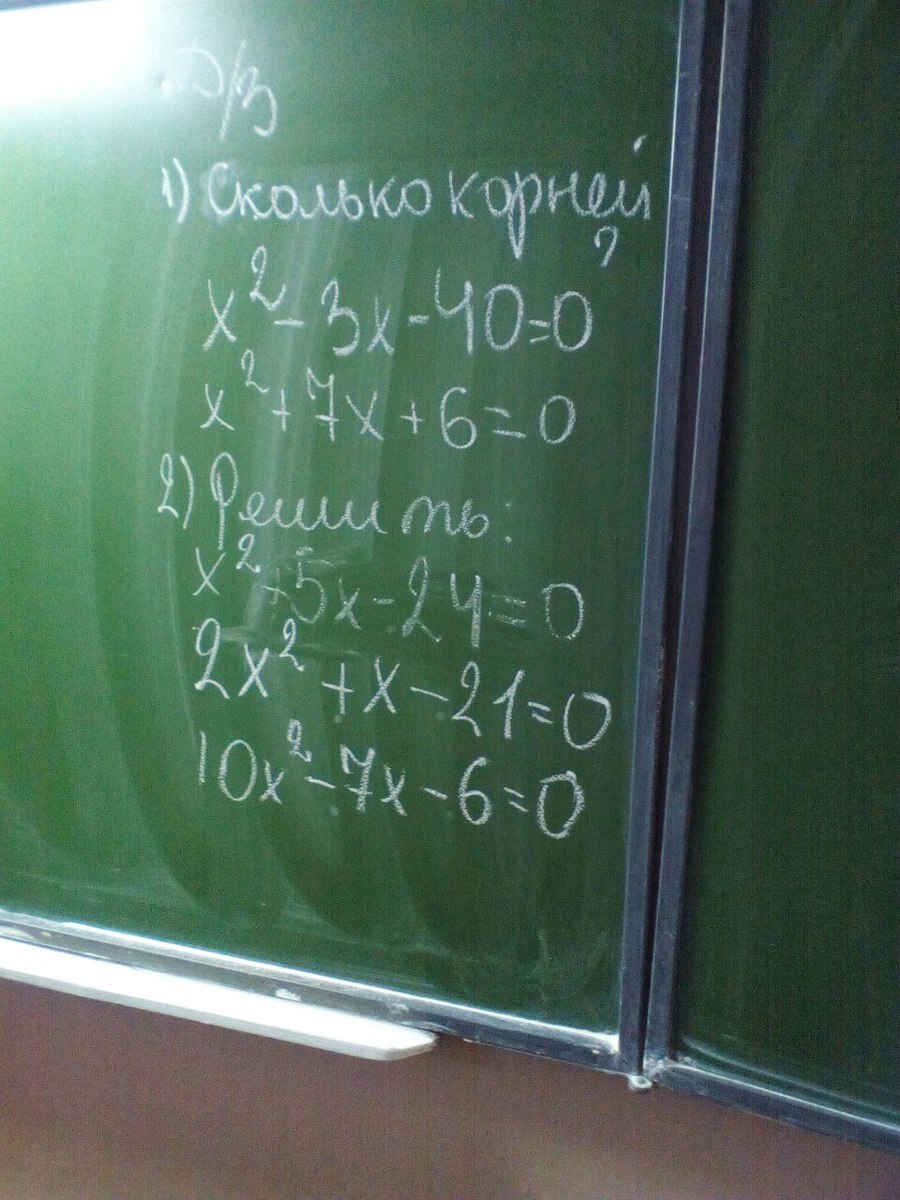 Д/З
1) Сколько корней
?
x² - 3x - 40 = 0
x² + 7x + 6 = 0
2) Решить:
x² + 5x - 24 = 0
2x² + x - 21 = 0
10x² - 7x - 6 = 0